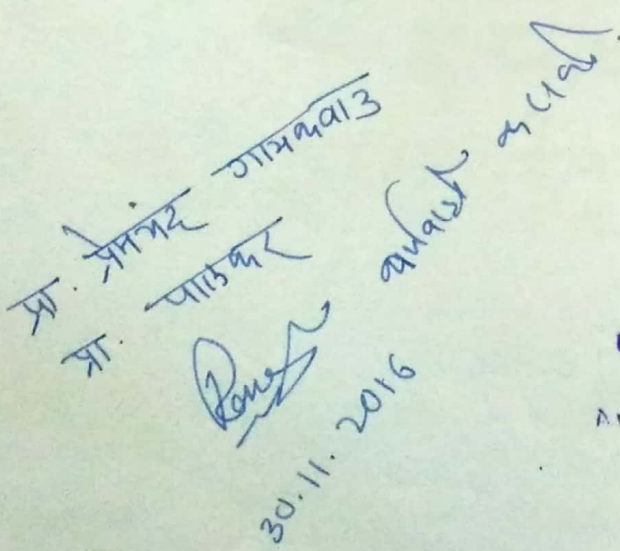 प्रा. प्रेमचंद गायकवाड
प्रा. पाईकर
कार्यवाही करावी.
30.11.2016